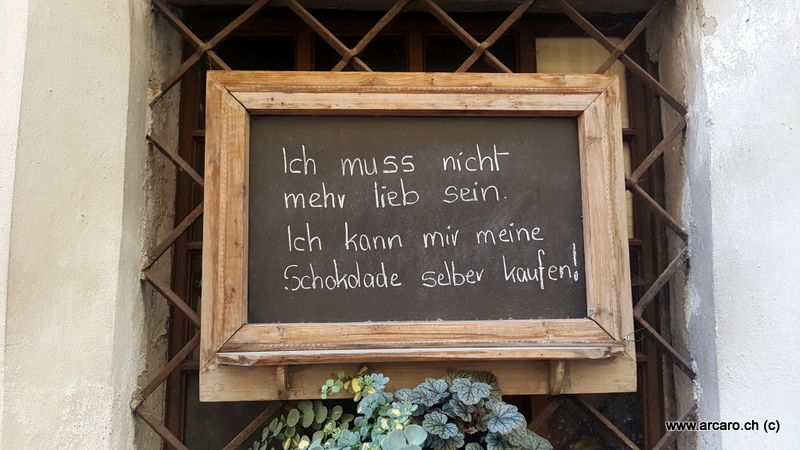 Ich muss nicht
mehr lieb sein.
Ich kann mir meine
Schokolade selber kaufen!
www.arcaro.ch (c)